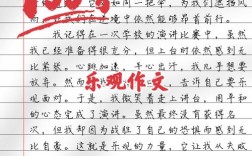 它如同一把伞，为我们遮挡风
我们在逆境中依然能够昂首前行。
我记得在一次学校的演讲比赛中，虽然
我已经准备得很充分，但上台时依然感到无
比紧张。心跳加速，手心出汗，我几乎想要
放弃。然而
告诉自己要乐
观面对。于是，我微笑着走上讲台，用平和
的心态完成了演讲。虽然最终没有获得名
次，但我却因为战胜了自己的恐惧而感到无
比自豪。这就是乐观的力量，它让我从失败
乐观作文